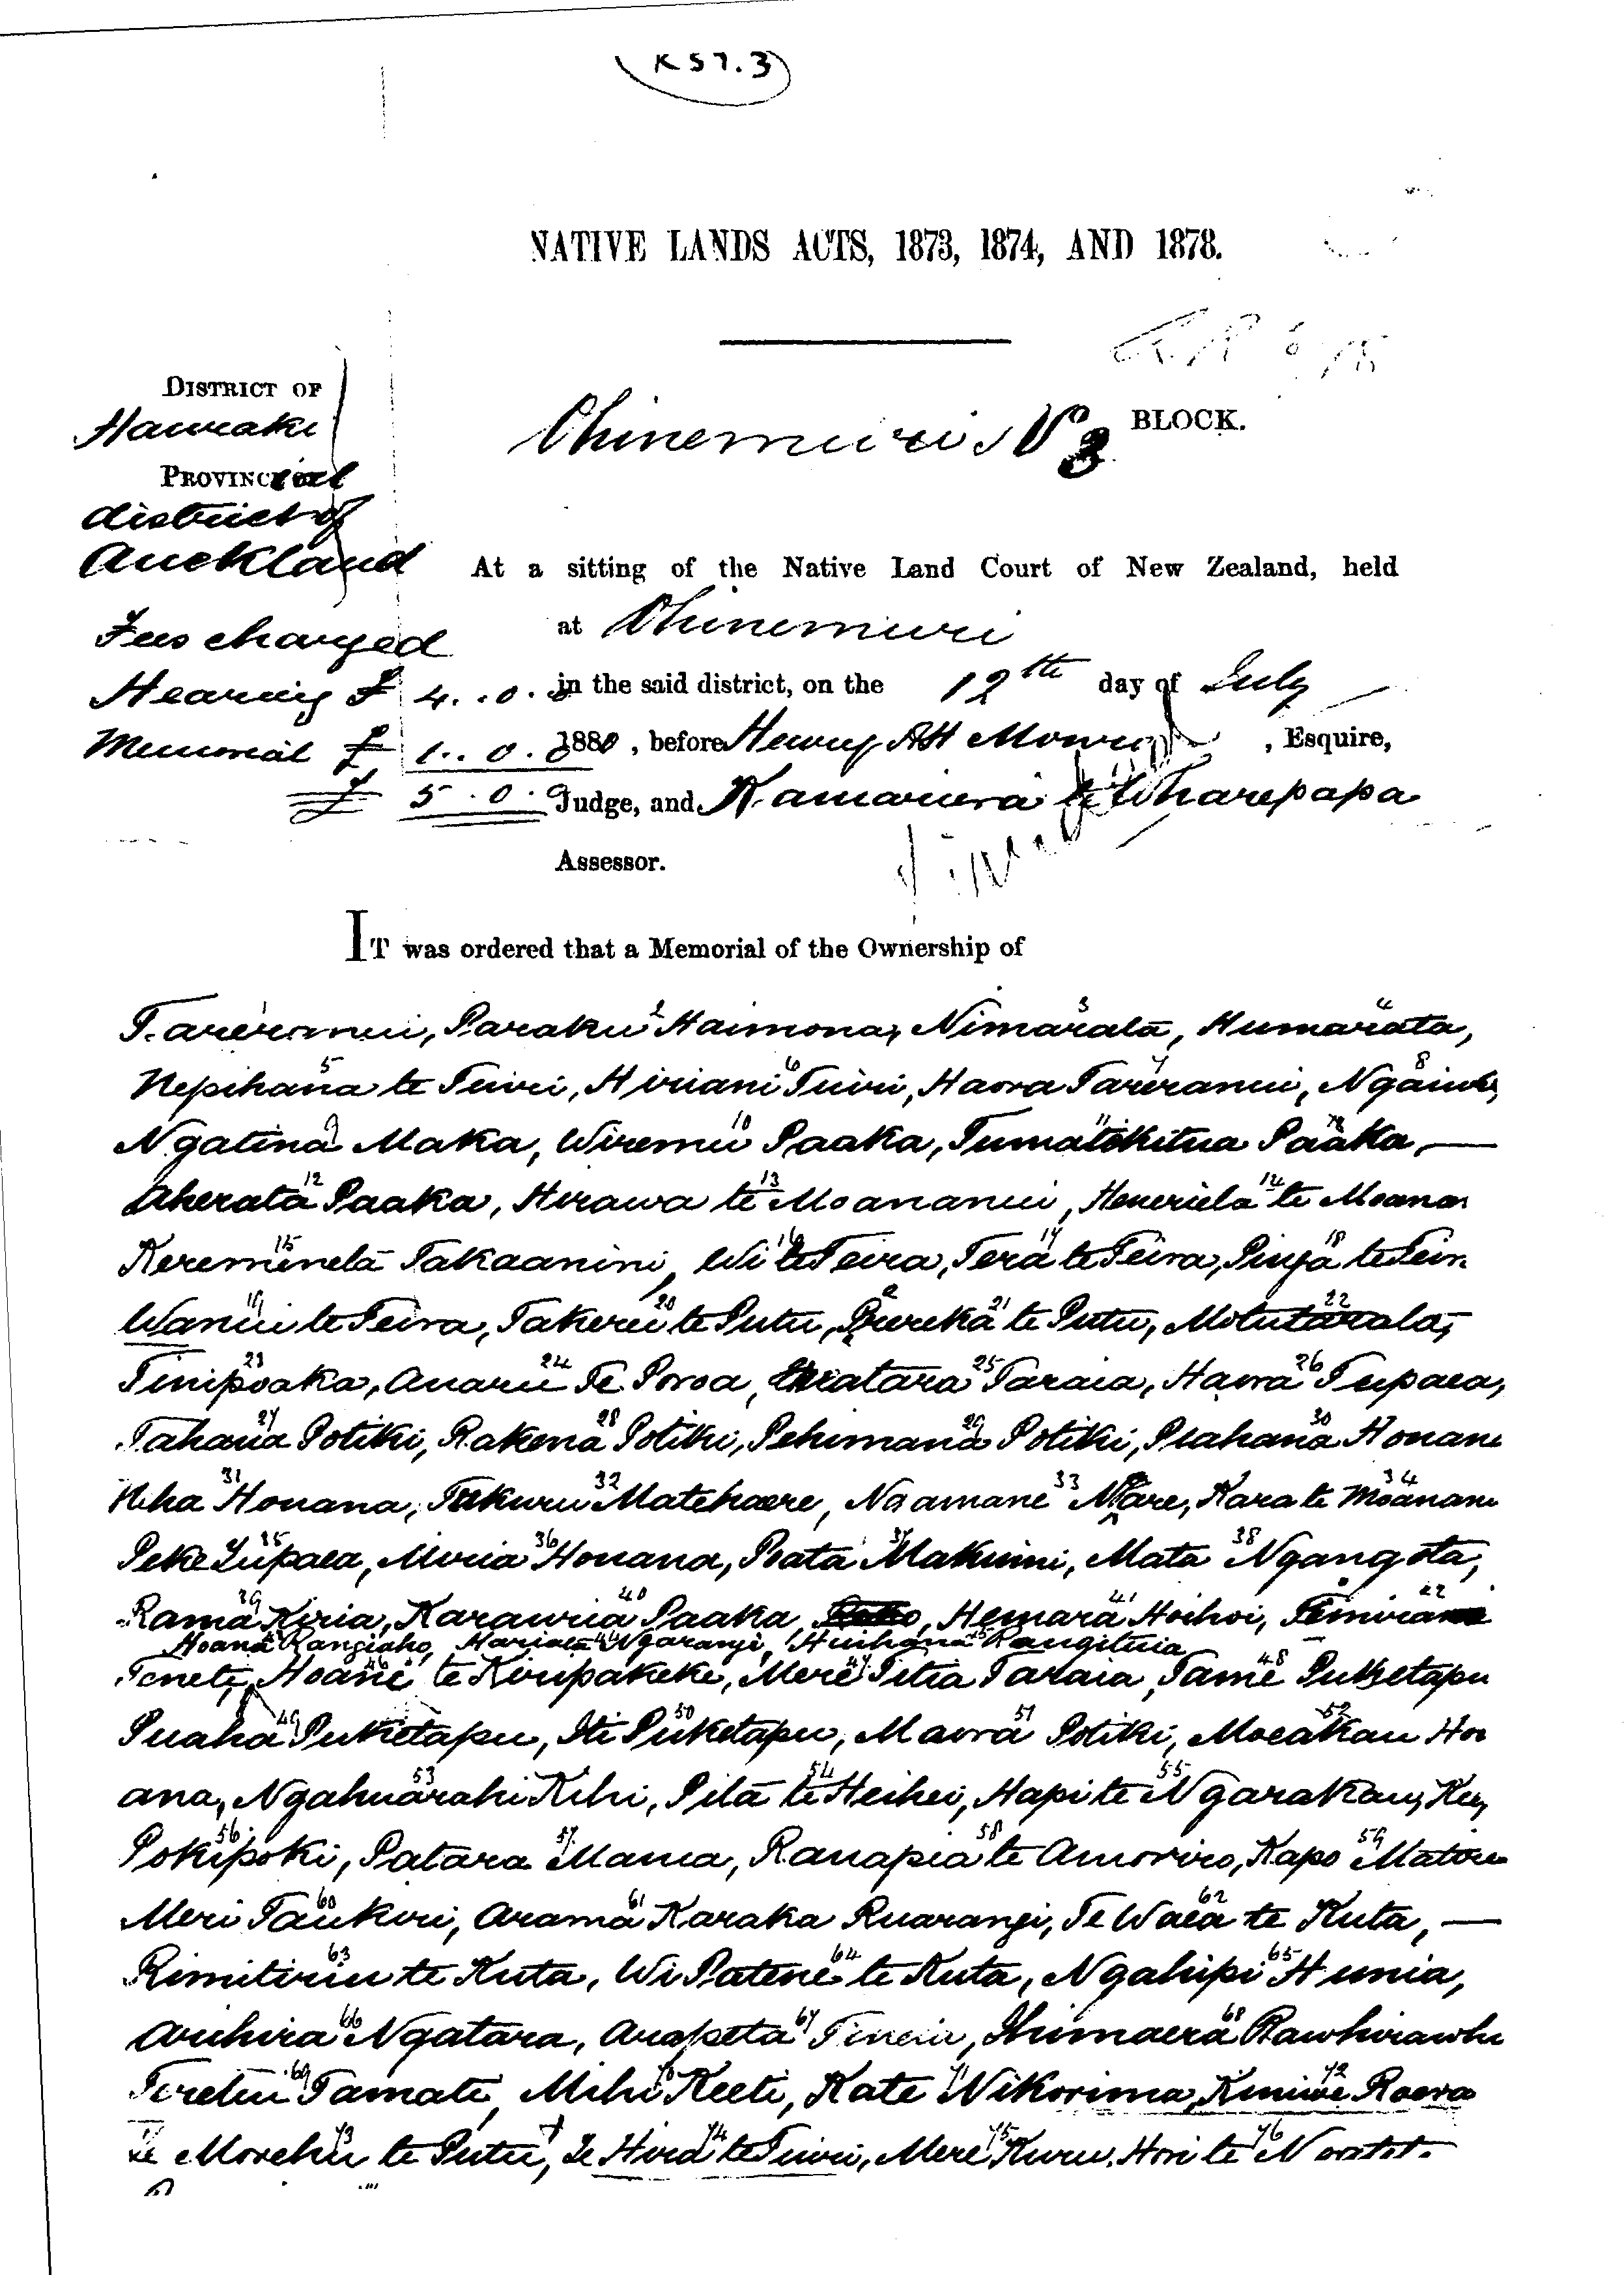 K57.3
NATIVE LANDS ACTS, 1873, 1874, AND 1878.
DISTRICT OF
Hauraki
PROVINCial
district of
Auckland
Ohinemuri No 3 BLOCK.
At a sitting of the Native Land Court of New Zealand, held
at Ohinemuri
in the said district, on the 12th day of July
1880, before Henry AH Monro, Esquire,
Judge, and Kamariera te Wharepapa
Assessor.
Fees charged
Hearing £ 4..0.0
Memorial £ 1..0.0
£ 5.0.0
IT was ordered that a Memorial of the Ownership of
Tareranui, Paraku 2 Haimona, Nimarata 3, Humarata 4,
Nepihana 5 te Tuiri, Hiriani 6 Tuiri, Haora 7 Tareranui, 8
Ngatina 9 Maka, Wiremu 10 Paaka, 11 Paaka,
Aherata 12 Paaka, Hirawa te 13 Moananui, 14 te Moana
15 Takaanini, Wi te 16 Teira, Tera 17 te Teira, Pinga 18 te Teira
Wanui 19 te Teira, Takerei 20 te Putu, Pureka 21 te Putu, 22
Tinipoaka 23, Anaru 24 Te Poroa, 25 Taraia, Haora 26 Tupaea,
Tahana 27 Potiki, Rakena 28 Potiki, Pehimana 29 Potiki, 30 Honana
Neha 31 Honana, Takuru 32 Matehaere, Naamane 33 Mare, Kara te 34 Moananu
Peke 35 Tupaea, Moria 36 Honana, Poata 37 Makuini, Mata 38
Rama 39 Kiria, Karauria 40 Paaka, Hemara 41 Hoihoi, 42
Hoana Rangiaho, Ngarangi, Huihana Rangituia
Tenete, Hoani 46 te Kiripakeke, Mere 47 Titia Taraia, Tame 48 Puketapu
Puaha 49 Puketapu, Iti 50 Puketapu, Maora 51 Potiki, Moeakau 52 Hon
ana, Ngahuarahi 53 Kihi, Pita 54 te Heihei, Hapi te 55 Ngarakau,
Pokipoki 56, Patara 57 Mania, Ranapia 58 te Amoriri, Kapo 59
Meri 60 Taukiri, Arama 61 Karaka Ruarangi, Te Waea 62 te Kuta,
Rimitiriu 63 te Kuta, Wi Patene 64 te Kuta, Ngahipi 65 Hunia,
Arihira 66 Ngatara, Arapeta 67, Ihimaera 68 Rawhirawhi
Teretiu 69 Tamati, Mihi 70 Keeti, Kate 71 Wikorima, 72
Te Morehu 73 te Putu, Te Hira 74 te Tuiri, Mere 75 Kuru, Hori te 76